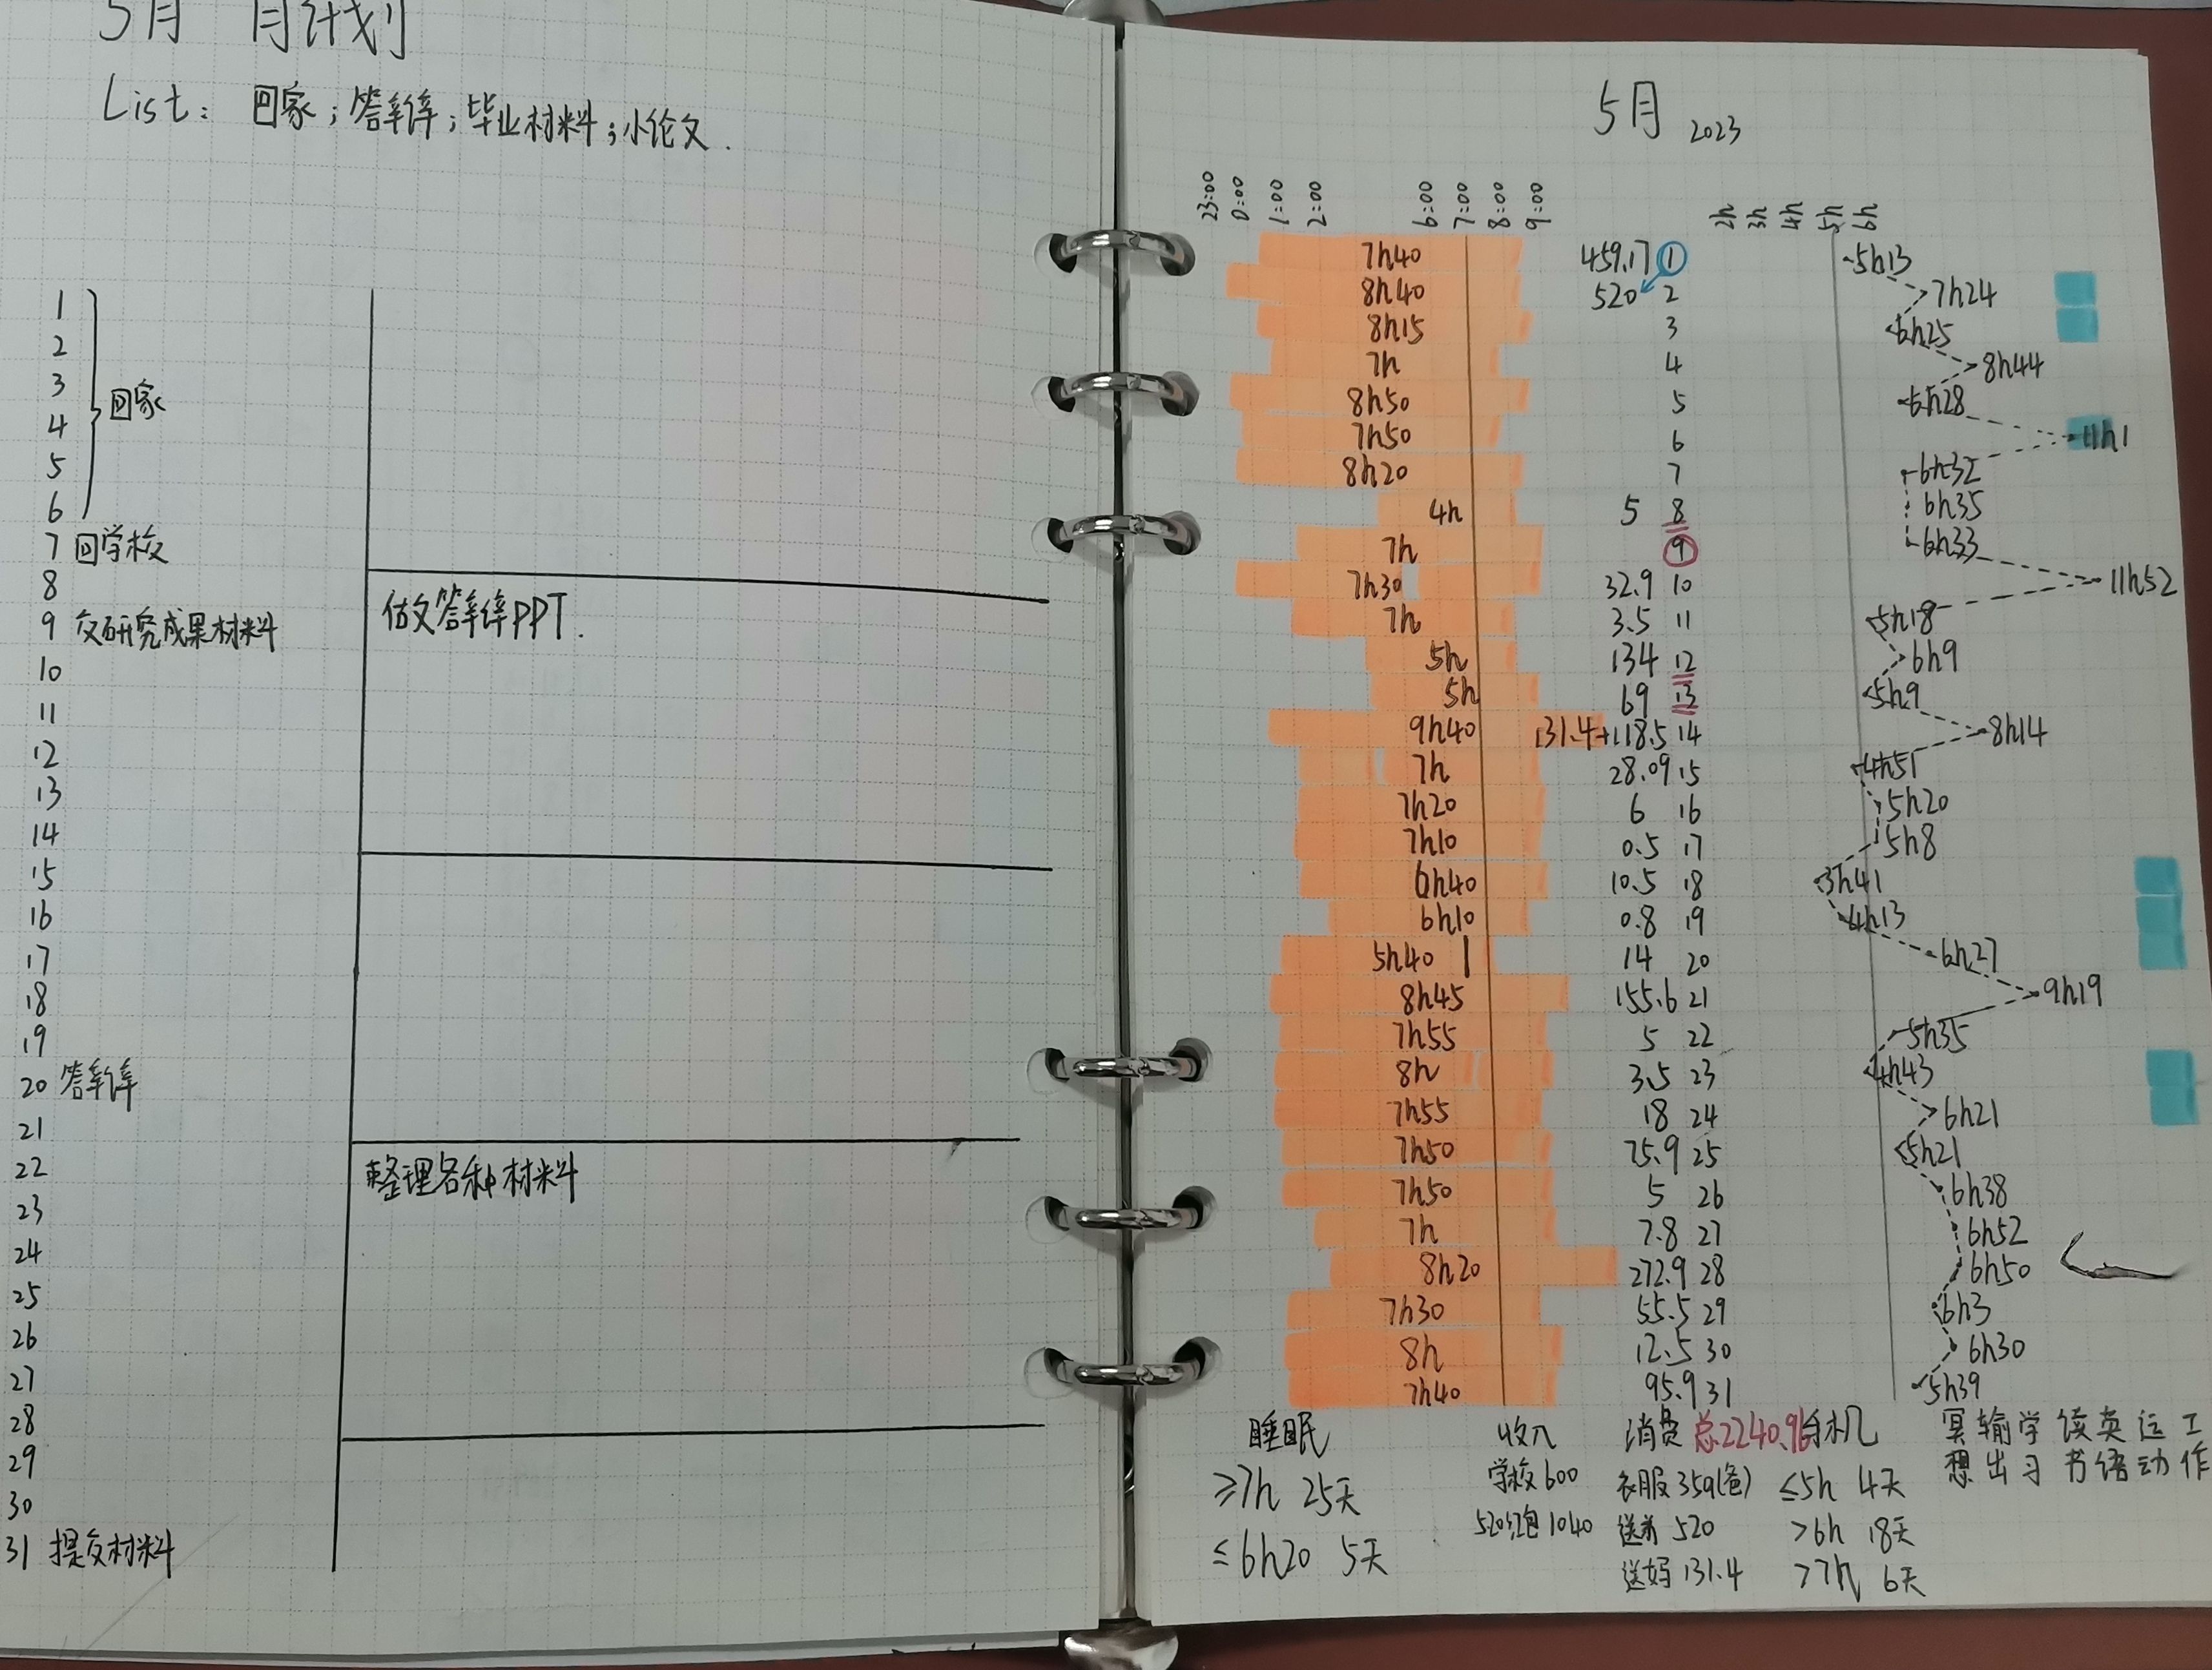 5月 月计划
List: 回家；答辩；毕业材料；小论文.
1
2
3
4
5
6
回家
7 回学校
8
9 交研究成果材料
10
11
12
13
14
15
16
17
18
19
20 答辩
21
22
23
24
25
26
27
28
29
30
31 提交材料
做答辩PPT.
整理各种材料
5月 2023
23:00 0:00 1:00 2:00 6:00 7:00 8:00 9:00 2h 3h 4h 5h 6h
7h40 459.17 1 5h13
8h40 520 2 7h24
8h15 3 6h25
7h 4 8h44
8h50 5 6h28
7h50 6 11h1
8h20 7 6h32
4h 5 8 6h35
7h 9 6h33
7h30 32.9 10 11h52
7h 3.5 11 5h18
5h 134 12 6h9
5h 69 13 5h9
9h40 131.4+118.5 14 8h14
7h 28.09 15 4h51
7h20 6 16 5h20
7h10 0.5 17 5h8
6h40 10.5 18 3h41
6h10 0.8 19 4h13
5h40 14 20 6h27
8h45 155.6 21 9h19
7h55 5 22 5h35
8h 3.5 23 4h43
7h55 18 24 6h21
7h50 75.9 25 5h21
7h50 5 26 6h38
7h 7.8 27 6h52
8h20 272.9 28 6h50
7h30 55.5 29 6h3
8h 12.5 30 6h30
7h40 95.9 31 5h39
睡眠
≥7h 25天
≤6h20 5天
收入
学校600
520红包1040
消费 总2240.96
衣服359(爸)
送弟 520
送妈 131.4
手机
≤5h 4天
>6h 18天
>7h 6天
冥想 输出 学习 读书 英语 运动 工作